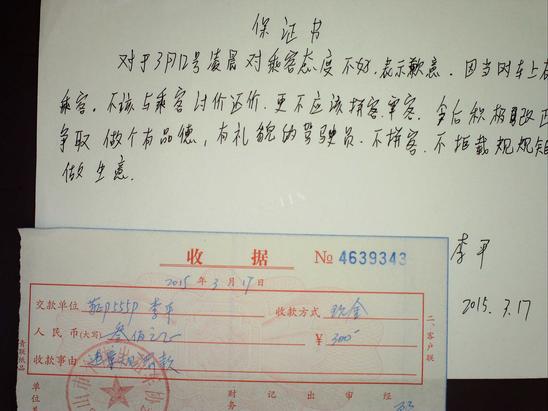 保证书
对于3月12号凌晨对乘客态度不好,表示歉意。因当时车上有
乘客,不该与乘客讨价还价,更不应该拼客宰客,今后积极改正
争取做个有品德,有礼貌的驾驶员,不拼客,不拒载规规矩
做生意.
李平
2015.3.17
收据 № 4639343
2015年3月17日
交款单位 李平 收款方式 现金
人民币(大写) 叁佰元 ¥300
收款事由 违章 款
二、客户联
财 记 出 审 经
务
单
位